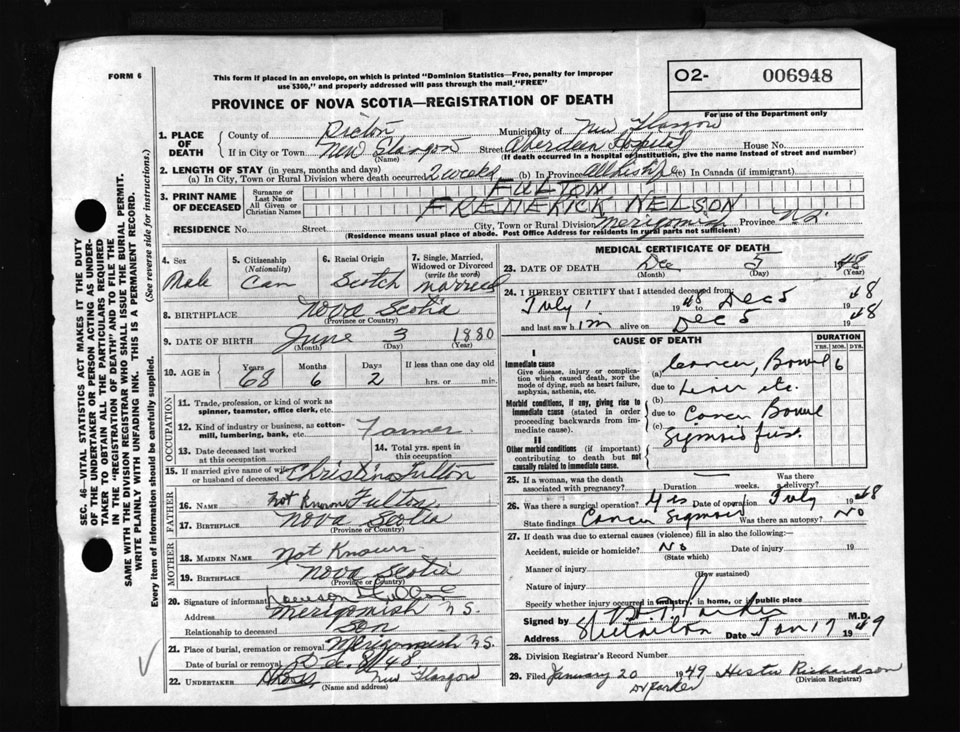 FORM 6
This form if placed in an envelope, on which is printed "Dominion Statistics—Free, penalty for improper
use $300," and properly addressed will pass through the mail "FREE"
O2- 006948
For use of the Department only
PROVINCE OF NOVA SCOTIA—REGISTRATION OF DEATH
1. PLACE OF DEATH
County of Pictou Municipality of New Glasgow
If in City or Town New Glasgow Street Aberdeen Hospital House No.
(Name) (If death occurred in a hospital or institution, give the name instead of street and number)
2. LENGTH OF STAY (in years, months and days)
(a) In City, Town or Rural Division where death occurred 2 weeks (b) In Province All his life (c) In Canada (if immigrant)
3. PRINT NAME OF DECEASED
Surname or Last Name FULTON
All Given or Christian Names FREDERICK NELSON
RESIDENCE No. Street City, Town or Rural Division Merigomish Province N.S.
(Residence means usual place of abode. Post Office Address for residents in rural parts not sufficient)
4. Sex Male
5. Citizenship (Nationality) Can
6. Racial Origin Scotch
7. Single, Married, Widowed or Divorced (write the word) Married
8. BIRTHPLACE Nova Scotia
(Province or Country)
9. DATE OF BIRTH June 3 1880
(Month) (Day) (Year)
10. AGE in Years 68 Months 6 Days 2 If less than one day old
hrs. or min.
OCCUPATION
11. Trade, profession, or kind of work as spinner, teamster, office clerk, etc.
12. Kind of industry or business, as cotton-mill, lumbering, bank, etc. Farmer
13. Date deceased last worked at this occupation
14. Total yrs. spent in this occupation
15. If married give name of wife or husband of deceased Christina Fulton
FATHER
16. NAME Not Known Fulton
17. BIRTHPLACE Nova Scotia
MOTHER
18. MAIDEN NAME Not Known
19. BIRTHPLACE Nova Scotia
(Province or Country)
20. Signature of informant Fulton
Address Merigomish N.S.
Relationship to deceased Son
21. Place of burial, cremation or removal Merigomish N.S.
Date of burial or removal Dec 8/48
22. UNDERTAKER New Glasgow
(Name and address)
MEDICAL CERTIFICATE OF DEATH
23. DATE OF DEATH Dec 5 1948
(Month) (Day) (Year)
24. I HEREBY CERTIFY that I attended deceased from:
July 1 1948 Dec 5 1948
and last saw him alive on Dec 5 1948
CAUSE OF DEATH
DURATION
YRS. MOS. DYS.
I
Immediate cause
Give disease, injury or complication which caused death, NOT the mode of dying, such as heart failure, asphyxia, asthenia, etc.
(a) Cancer, Bowel 6
due to Liver etc.
Morbid conditions, if any, giving rise to immediate cause (stated in order proceeding backwards from immediate cause).
(b)
due to Cancer Bowel
(c) Sigmoid first
II
Other morbid conditions (if important) contributing to death but not causally related to immediate cause.
25. If a woman, was the death associated with pregnancy? Duration weeks. Was there delivery?
26. Was there a surgical operation? Yes Date of operation July 1948
State findings Cancer Sigmoid Was there an autopsy? No
27. If death was due to external causes (violence) fill in also the following:
Accident, suicide or homicide? No Date of injury 19
(State which)
Manner of injury
(How sustained)
Nature of injury
Specify whether injury occurred in industry, in home, or in public place
Signed by Parker M.D.
Address Date Jan 17 1949
28. Division Registrar's Record Number
29. Filed January 20 1949 Hester Richardson
Dr Parker (Division Registrar)
SEC. 46—VITAL STATISTICS ACT MAKES IT THE DUTY
OF THE UNDERTAKER OR PERSON ACTING AS UNDER-
TAKER TO OBTAIN ALL THE PARTICULARS REQUIRED
IN THE "REGISTRATION OF DEATH" AND TO FILE THE
SAME WITH THE DIVISION REGISTRAR WHO SHALL ISSUE THE BURIAL PERMIT.
WRITE PLAINLY WITH UNFADING INK. THIS IS A PERMANENT RECORD.
Every item of information should be carefully supplied. (See reverse side for instructions.)